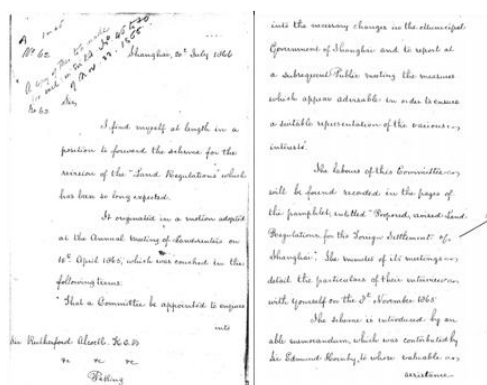 A
No 62
A copy of this was made
Shanghai, 20th July 1866
No 62
Sir,
I find myself at length in a
position to forward the scheme for the
revision of the "Land Regulations" which
has been so long expected.
It originated in a motion adopted
at the Annual Meeting of Landrenters on
10th April 1865, which was couched in the
following terms:
"That a Committee be appointed to enquire
into
Sir Rutherford Alcock. K.C.B
&c &c &c
Peking
into the necessary changes in the Municipal
Government of Shanghai and to report at
a subsequent Public meeting the measures
which appear advisable in order to ensure
a suitable representation of the various
interests".
The labours of this Committee
will be found recorded in the pages of
the pamphlet, entitled "Proposed, revised Land
Regulations for the Foreign Settlement of
Shanghai". The minutes of its meetings
detail the particulars of their interviews
with yourself on the 3d November 1865
The scheme is introduced by an
able memorandum, which was contributed by
Sir Edmund Hornby, to whose valuable
assistance